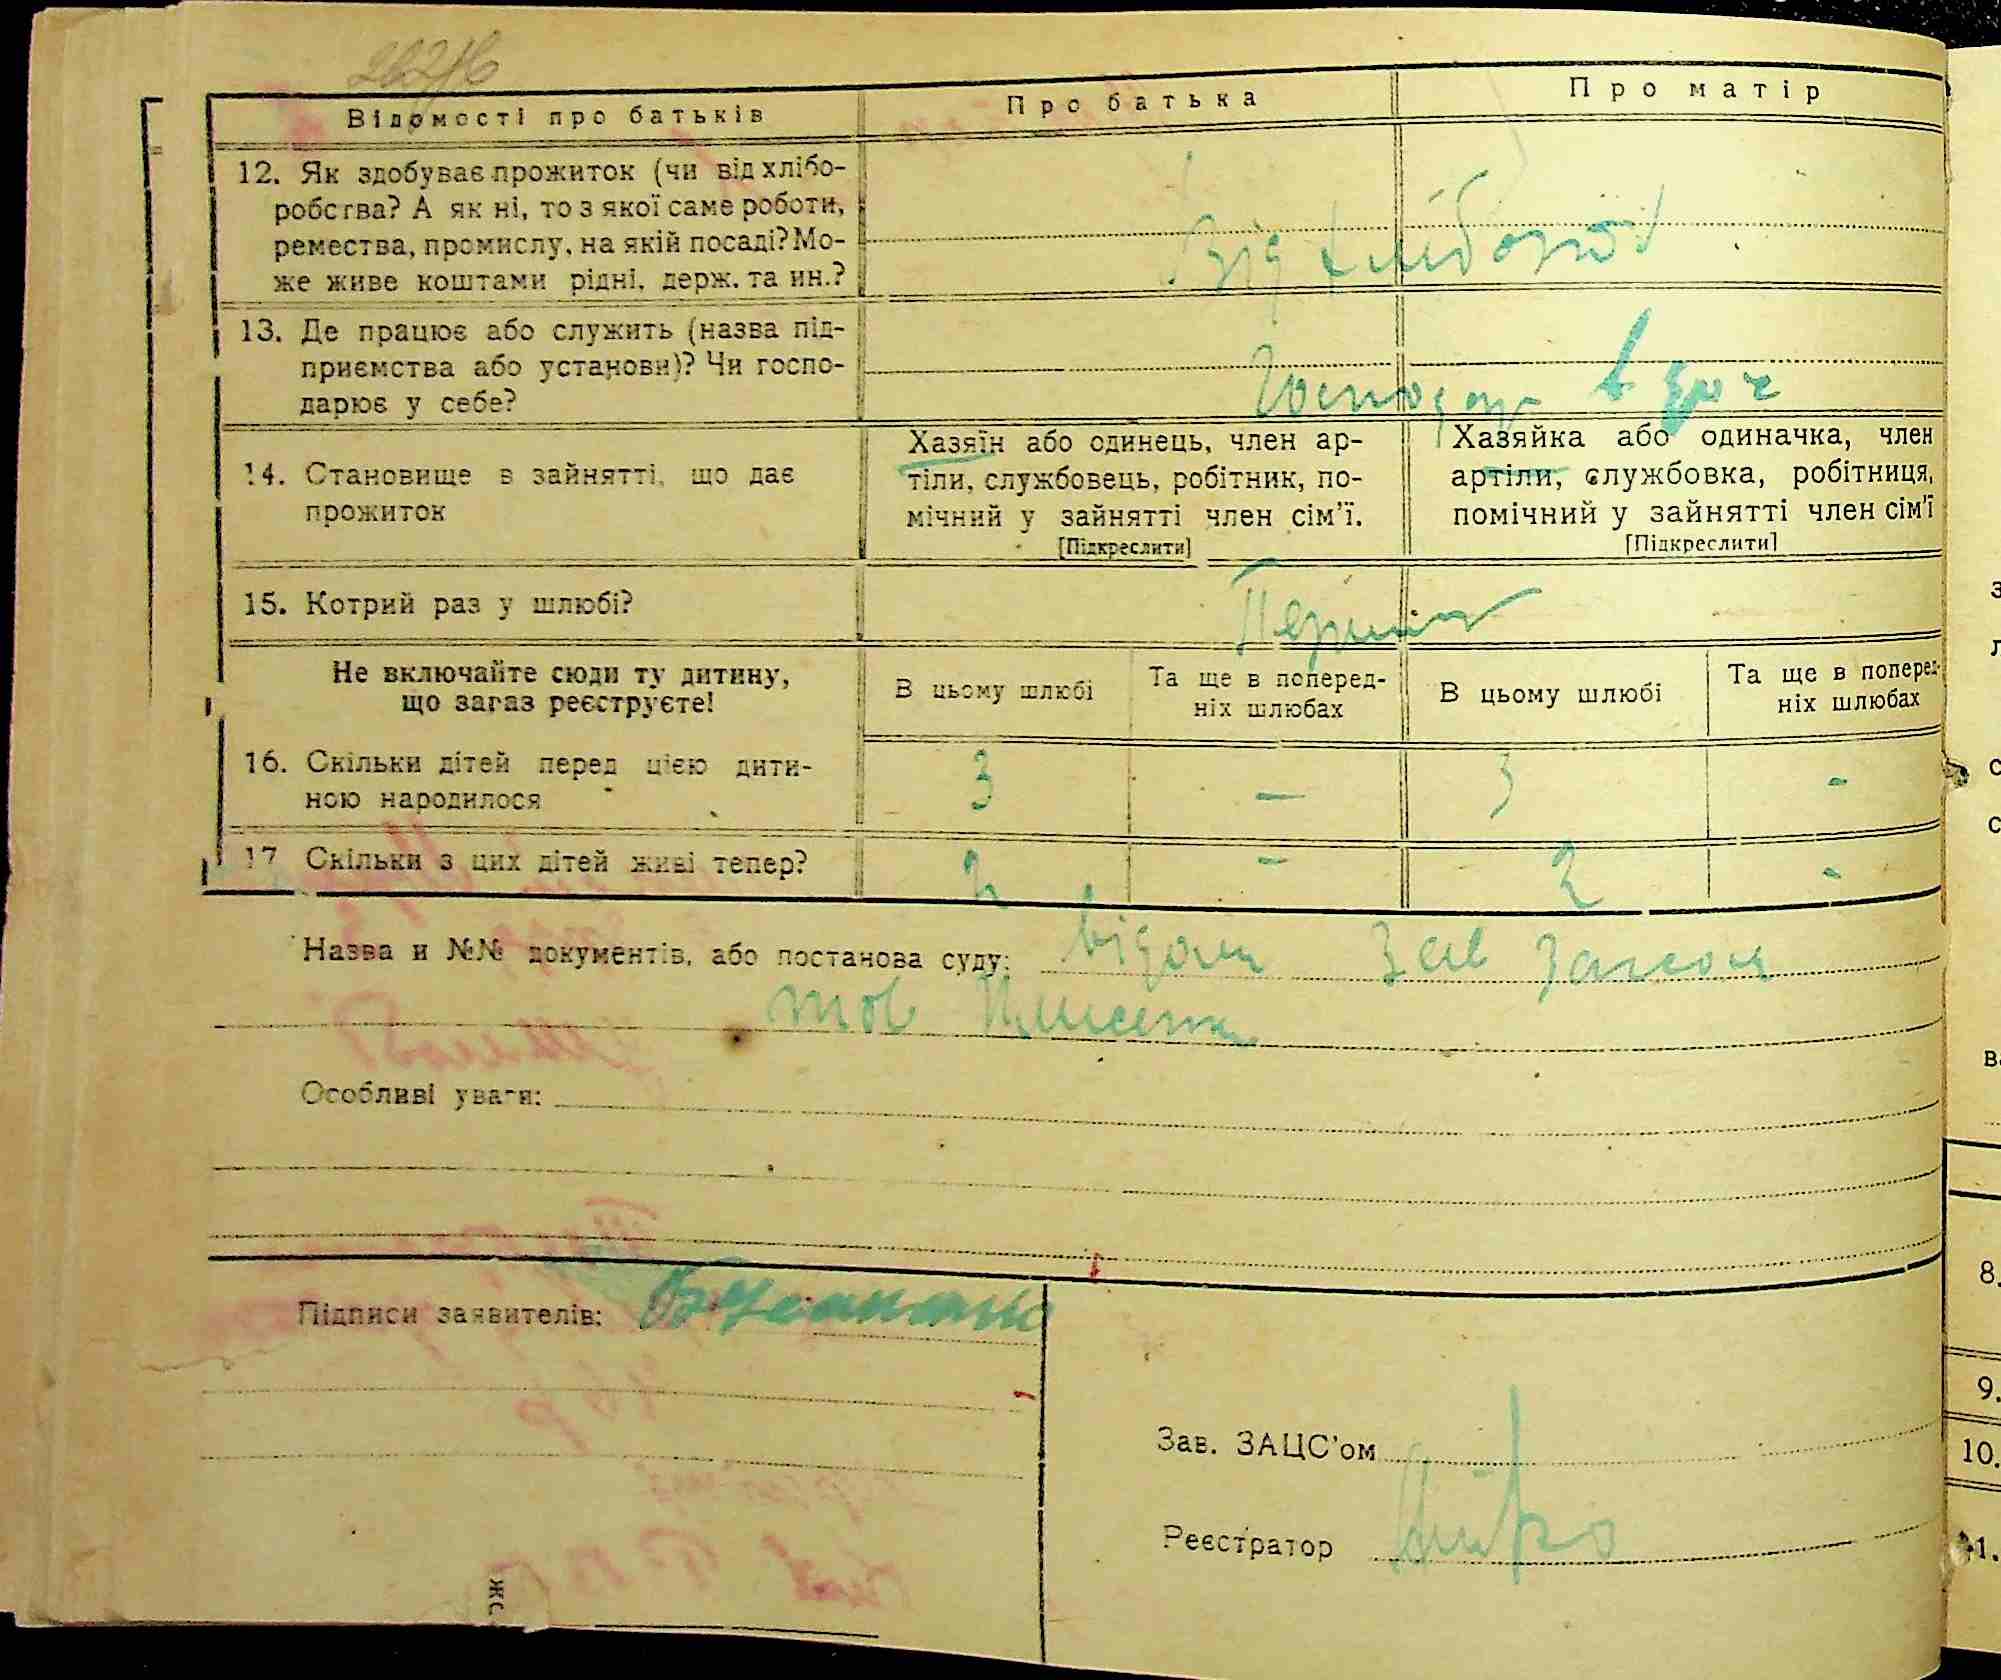 Відомості про батьків
Про батька
Про матір
12. Як здобуває прожиток (чи від хлібо-
робства? А як ні, то з якої саме роботи,
ремества, промислу, на якій посаді? Мо-
же живе коштами рідні, держ. та ин.?
Від хлібороб
13. Де працює або служить (назва під-
приємства або установи)? Чи госпо-
дарює у себе?
Господар в
14. Становище в зайнятті, що дає
прожиток
Хазяїн або одинець, член ар-
тіли, службовець, робітник, по-
мічний у зайнятті член сім'ї.
[Підкреслити]
Хазяйка або одиначка, член
артіли, службовка, робітниця,
помічний у зайнятті член сім'ї
[Підкреслити]
15. Котрий раз у шлюбі?
Перший
Не включайте сюди ту дитину,
що зараз реєструєте!
В цьому шлюбі
Та ще в поперед-
ніх шлюбах
В цьому шлюбі
Та ще в поперед-
ніх шлюбах
16. Скільки дітей перед цією дити-
ною народилося
3 – 3 -
17 Скільки з цих дітей живі тепер?
2 – 2 -
Назва и №№ документів, або постанова суду: відом Зав Загсом
тов
Особливі уваги:
Підписи заявителів:
Зав. ЗАЦС'ом
Реєстратор
8.
9.
10.
1.